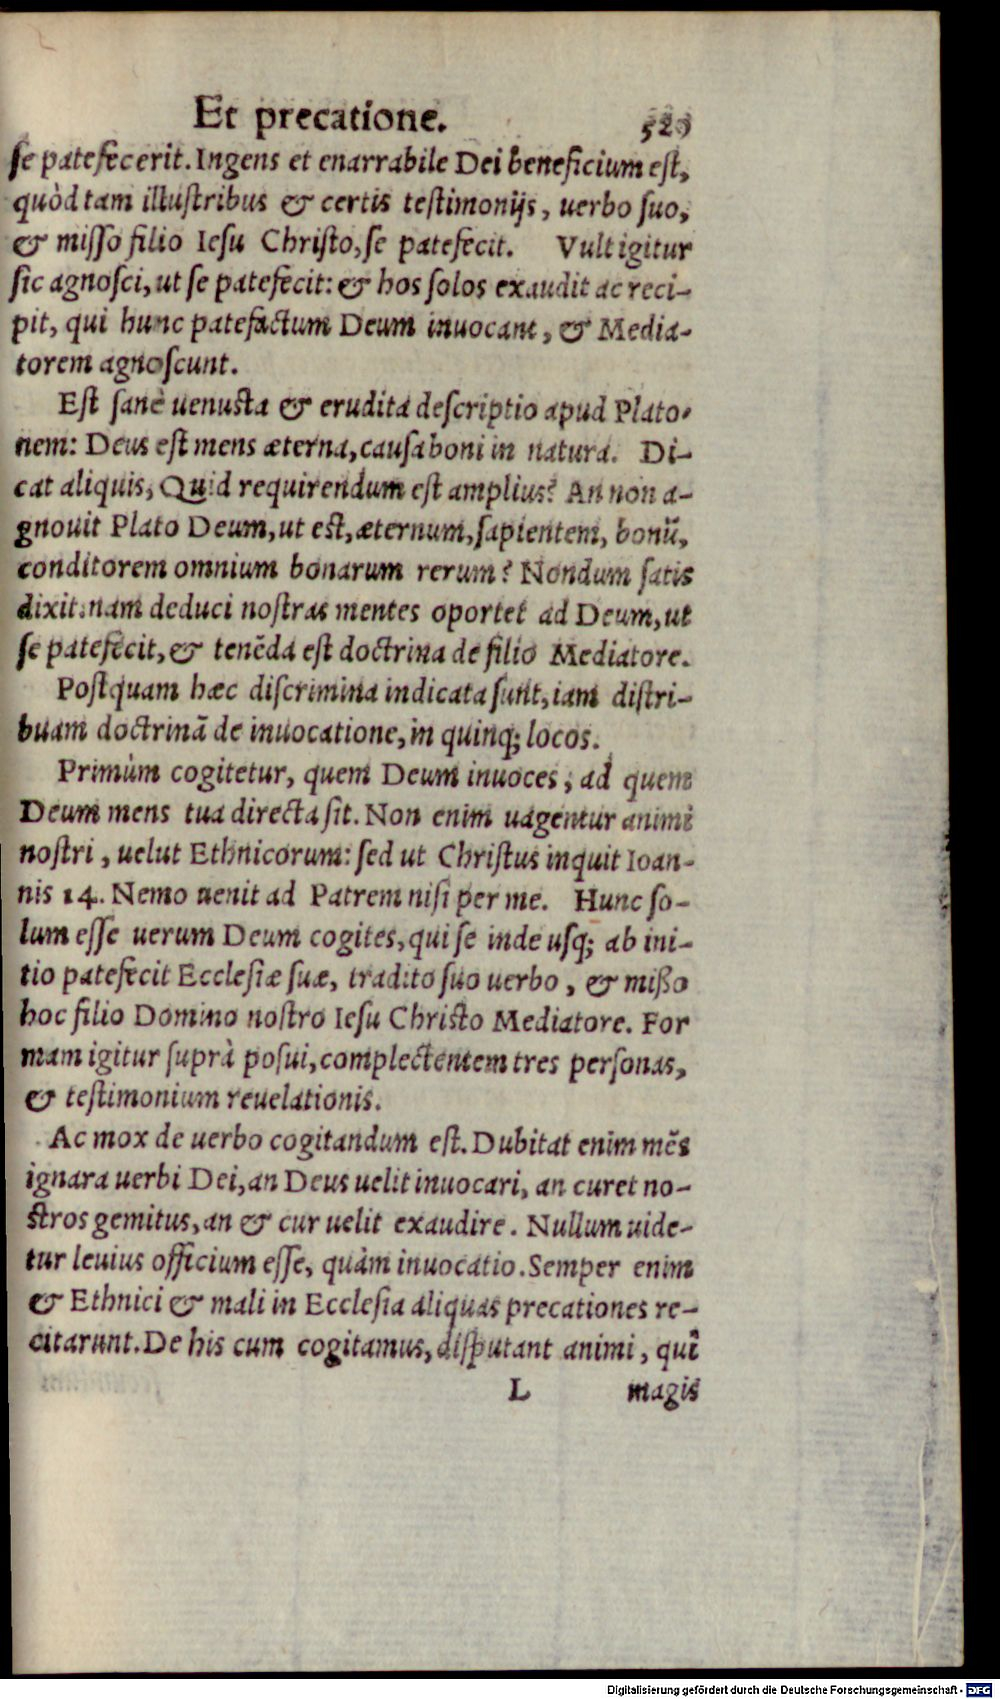 Et precatione. 529
se patefecerit. Ingens et enarrabile Dei beneficium est,
quòd tam illustribus & certis testimonijs, uerbo suo,
& misso filio Iesu Christo, se patefecit. Vult igitur
sic agnosci, ut se patefecit: & hos solos exaudit ac reci-
pit, qui hunc patefactum Deum inuocant, & Media-
torem agnoscunt.
Est sanè uenusta & erudita descriptio apud Plato-
nem: Deus est mens æterna, causa boni in natura. Di-
cat aliquis, Quid requirendum est amplius? An non a-
gnouit Plato Deum, ut est, æternum, sapientem, bonũ,
conditorem omnium bonarum rerum? Nondum satis
dixit: nam deduci nostras mentes oportet ad Deum, ut
se patefecit, & tenẽda est doctrina de filio Mediatore.
Postquam hæc discrimina indicata sunt, iam distri-
buam doctrinã de inuocatione, in quinq; locos.
Primùm cogitetur, quem Deum inuoces, ad quem
Deum mens tua directa sit. Non enim uagentur animi
nostri, uelut Ethnicorum: sed ut Christus inquit Ioan-
nis 14. Nemo uenit ad Patrem nisi per me. Hunc so-
lum esse uerum Deum cogites, qui se inde usq; ab ini-
tio patefecit Ecclesiæ suæ, tradito suo uerbo, & mißo
hoc filio Domino nostro Iesu Christo Mediatore. For
mam igitur suprà posui, complectentem tres personas,
& testimonium reuelationis.
Ac mox de uerbo cogitandum est. Dubitat enim mẽs
ignara uerbi Dei, an Deus uelit inuocari, an curet no-
stros gemitus, an & cur uelit exaudire. Nullum uide-
tur leuius officium esse, quàm inuocatio. Semper enim
& Ethnici & mali in Ecclesia aliquas precationes re-
citarunt. De his cum cogitamus, disputant animi, qui
L magis
Digitalisierung gefördert durch die Deutsche Forschungsgemeinschaft - DFG